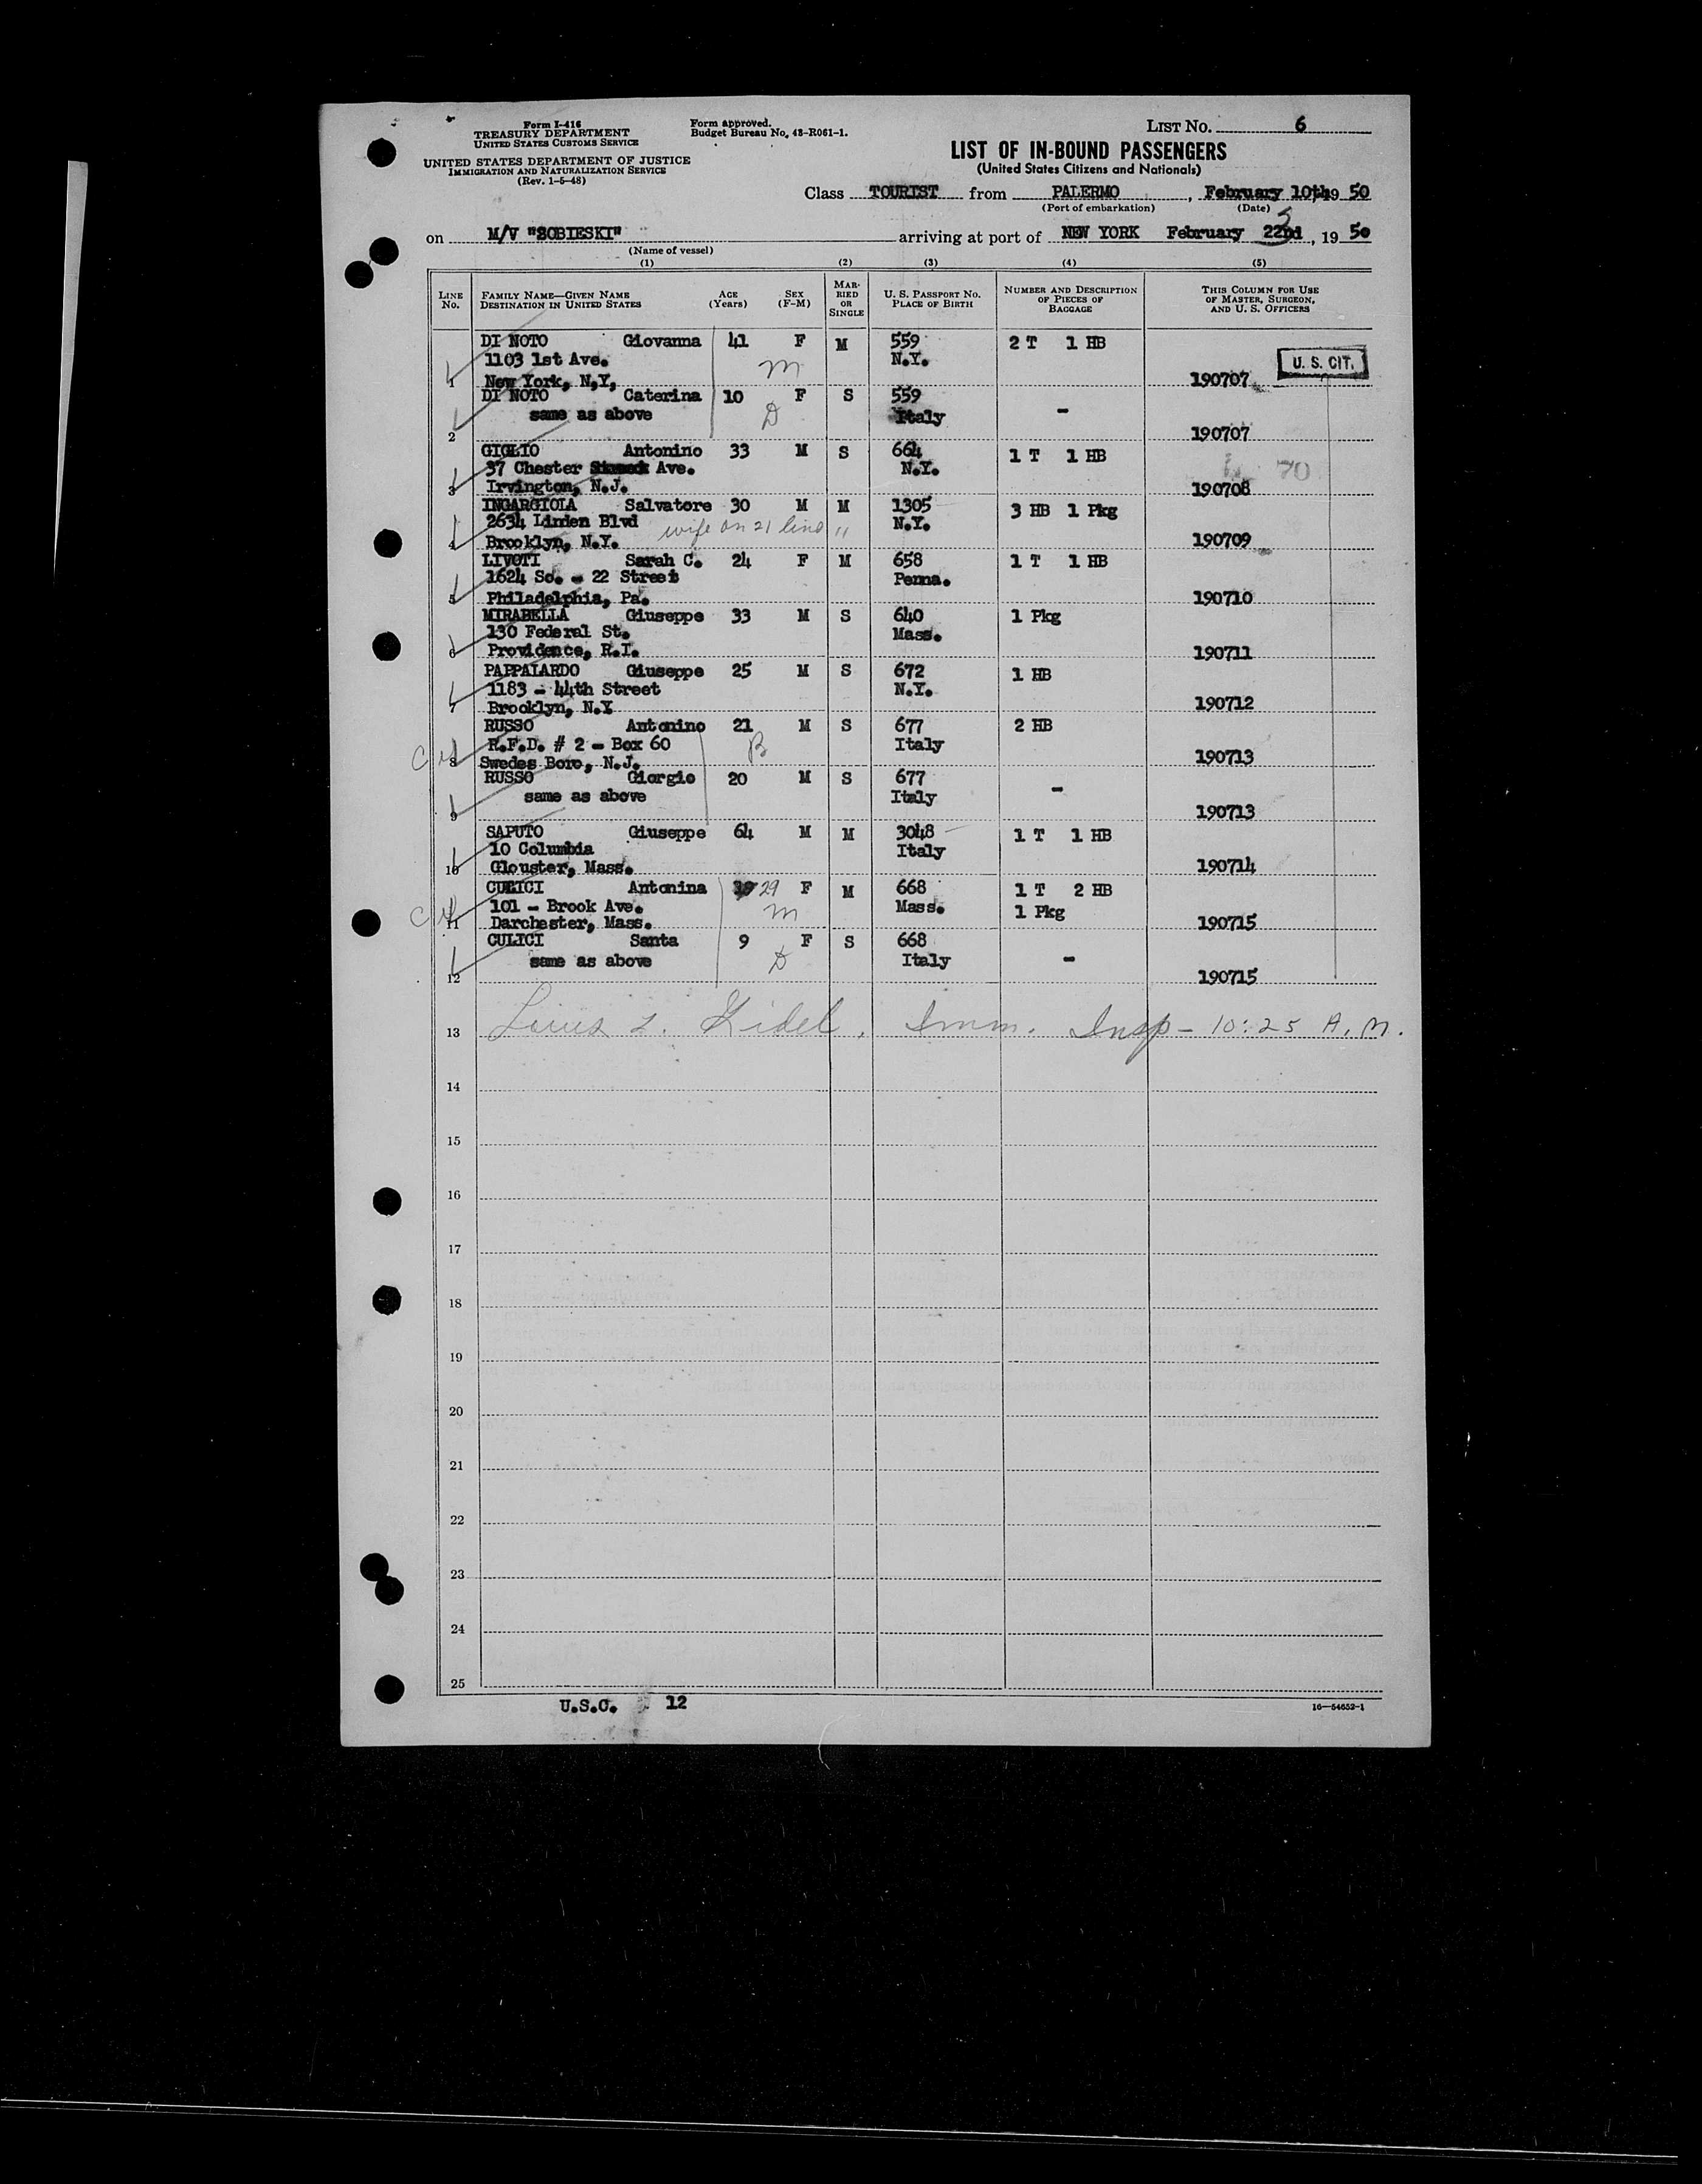 Form I-416
TREASURY DEPARTMENT
UNITED STATES CUSTOMS SERVICE
UNITED STATES DEPARTMENT OF JUSTICE
IMMIGRATION AND NATURALIZATION SERVICE
(Rev. 1-5-48)
Form approved.
Budget Bureau No. 43-R061-1.
LIST NO. 6
LIST OF IN-BOUND PASSENGERS
(United States Citizens and Nationals)
Class TOURIST from PALERMO, February 10th, 19 50
(Port of embarkation) (Date)
on M/V "SOBIESKI" arriving at port of NEW YORK February 22nd 3, 19 50
(Name of vessel)
(1) (2) (3) (4) (5)
LINE NO. FAMILY NAME—GIVEN NAME DESTINATION IN UNITED STATES AGE (Years) SEX (F-M) MARRIED OR SINGLE U. S. PASSPORT NO. PLACE OF BIRTH NUMBER AND DESCRIPTION OF PIECES OF BAGGAGE THIS COLUMN FOR USE OF MASTER, SURGEON, AND U. S. OFFICERS
DI NOTO Giovanna 41 F M 559 2 T 1 HB
1103 1st Ave. m N.Y. U. S. CIT.
1 New York, N.Y, 190707
DI NOTO Caterina 10 F S 559
same as above D Italy -
2 190707
GIGLIO Antonino 33 M S 664 1 T 1 HB
37 Chester Ave. N.Y. 70
3 Irvington, N.J. 190708
INGARGIOLA Salvatore 30 M M 1305 3 HB 1 Pkg
2634 Linden Blvd wife on 21 line 11 N.Y.
4 Brooklyn, N.Y. 190709
LIVOTI Sarah C. 24 F M 658 1 T 1 HB
1624 So. - 22 Street Penna.
5 Philadelphia, Pa. 190710
MIRABELLA Giuseppe 33 M S 640 1 Pkg
130 Federal St. Mass.
6 Providence, R.I. 190711
PAPPALARDO Giuseppe 25 M S 672 1 HB
1183 - 44th Street N.Y.
7 Brooklyn, N.Y 190712
RUSSO Antonino 21 M S 677 2 HB
R.F.D. # 2 - Box 60 B Italy
8 Swedes Boro, N.J. 190713
RUSSO Giorgio 20 M S 677
same as above Italy -
9 190713
SAPUTO Giuseppe 64 M M 3048 1 T 1 HB
10 Columbia Italy
10 Glouster, Mass. 190714
CULICI Antonina 29 F M 668 1 T 2 HB
101 - Brook Ave. m Mass. 1 Pkg
11 Darchester, Mass. 190715
CULICI Santa 9 F S 668
same as above D Italy -
12 190715
13 Louis L. Gidel, Imm. Insp - 10:25 A.M.
14
15
16
17
18
19
20
21
22
23
24
25
U.S.C. 12
16—54652-1